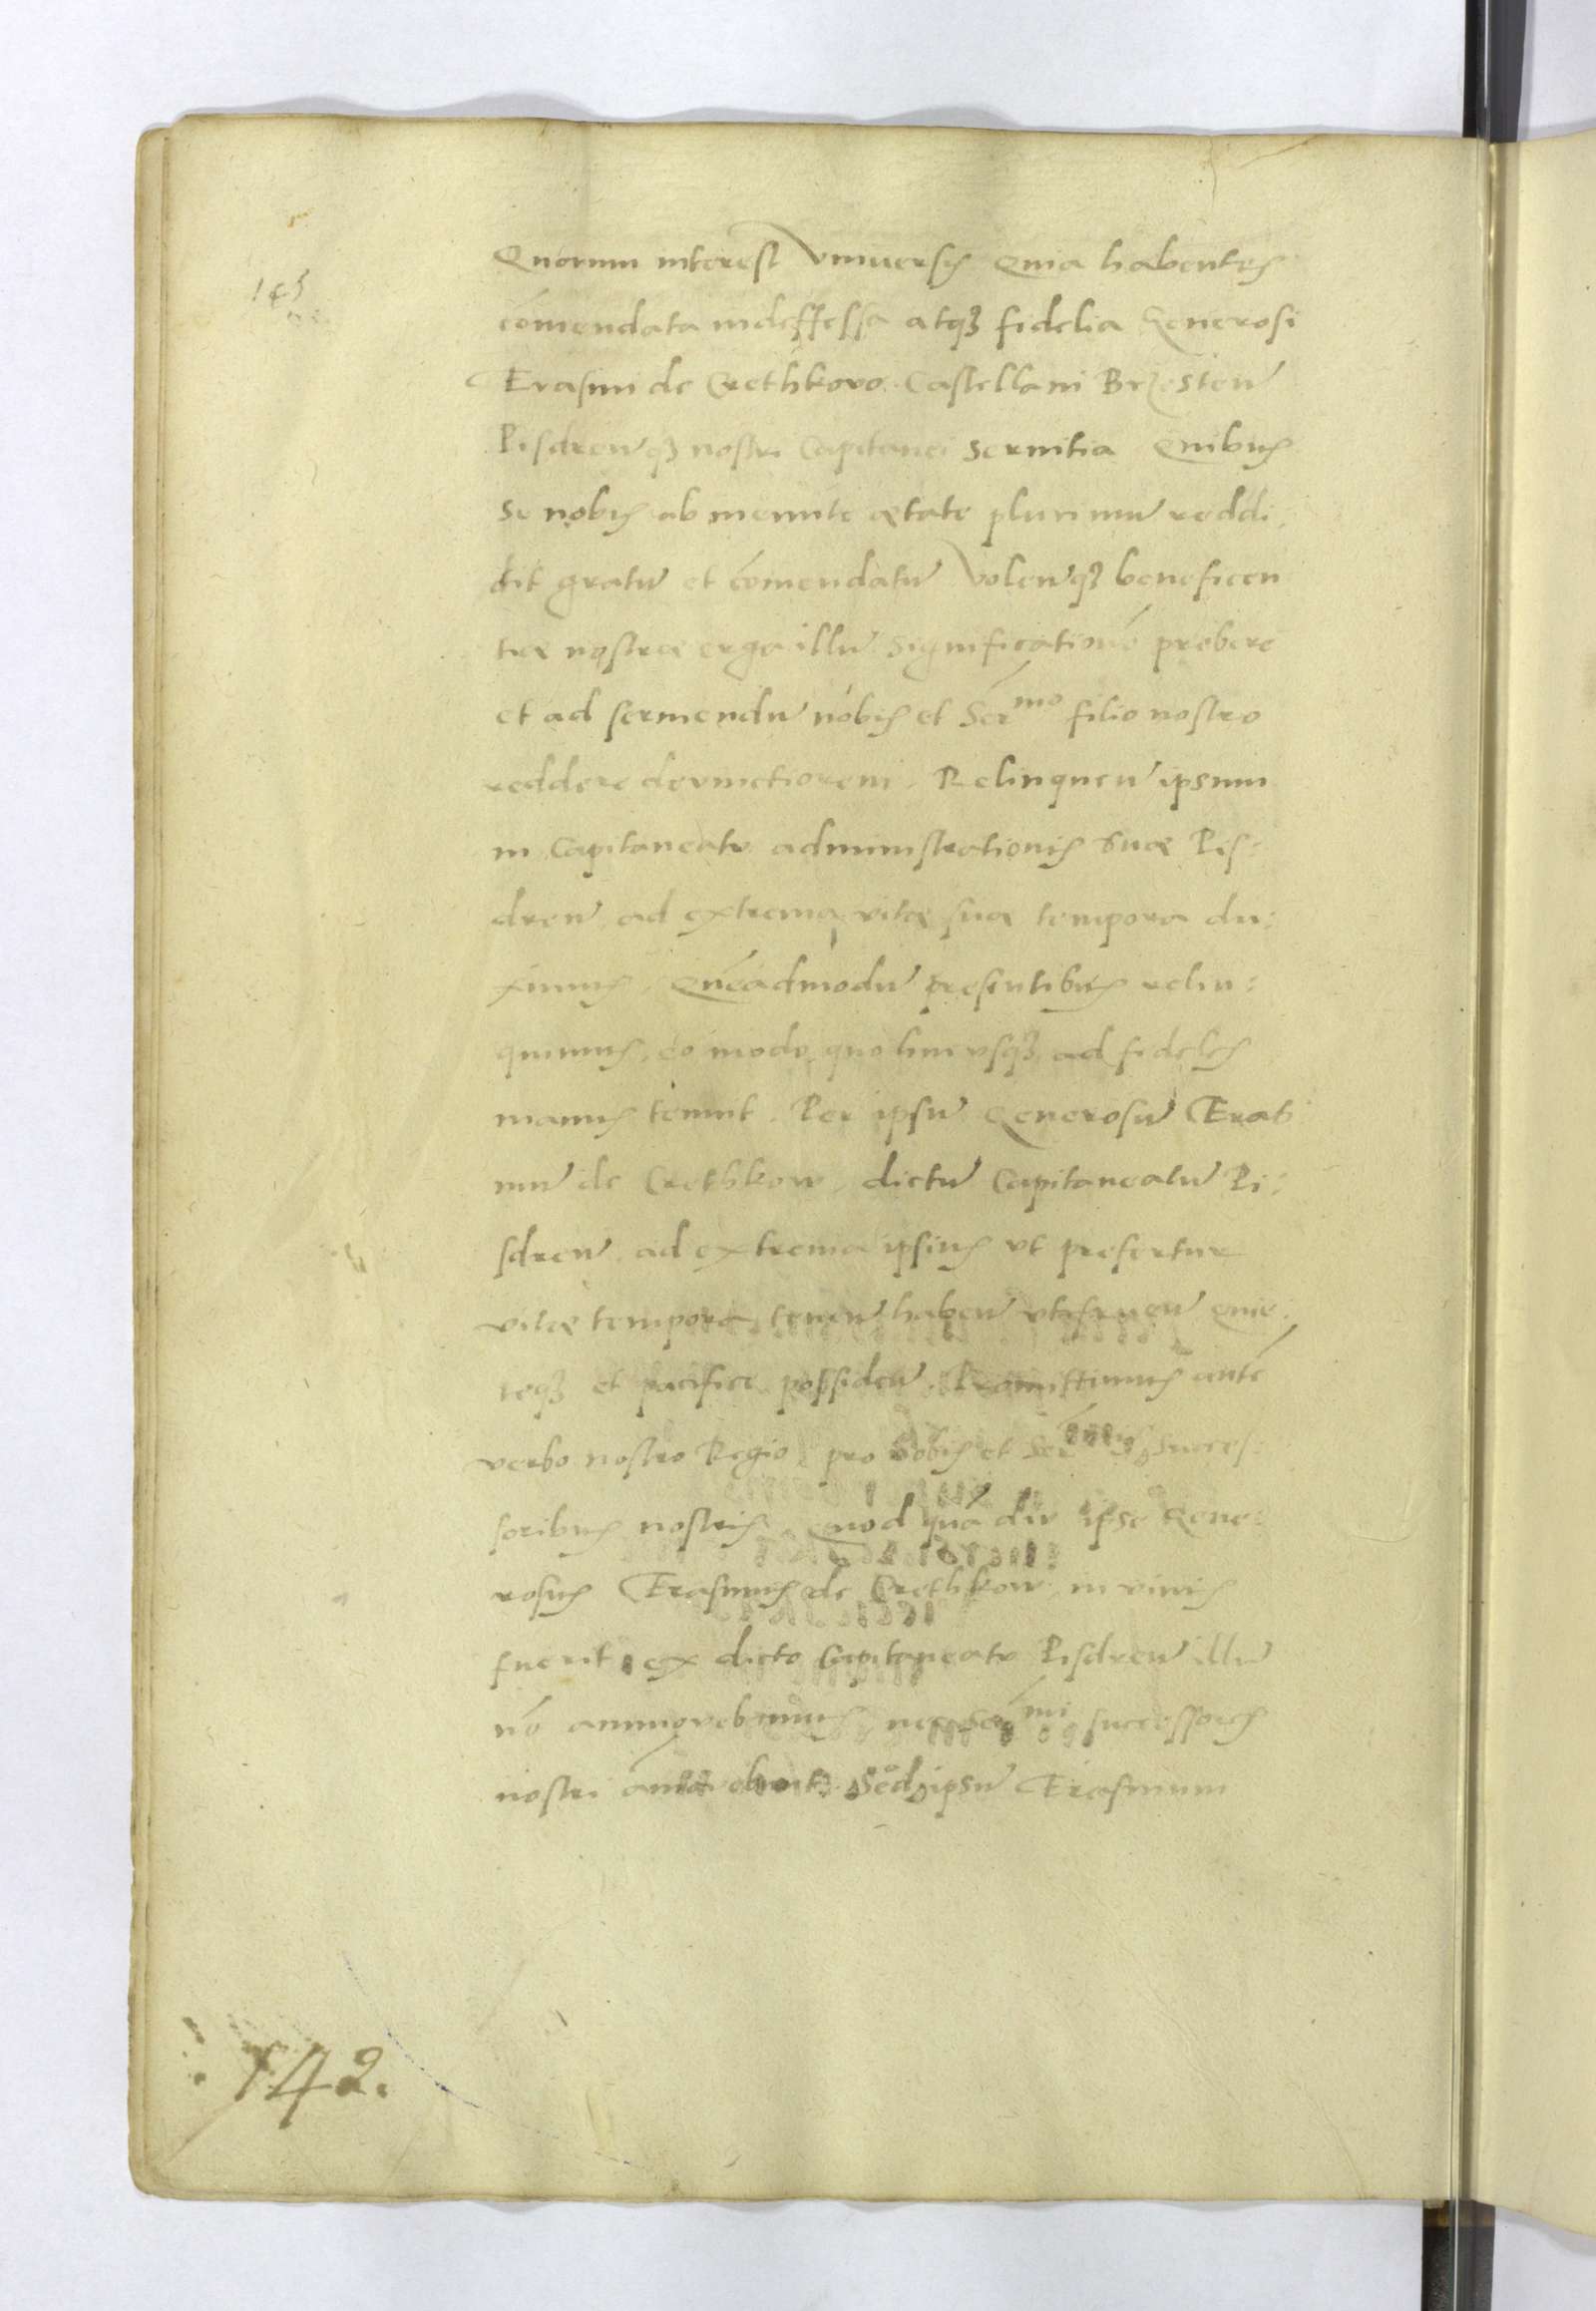 Quorum interest Vniuersis Quia habentes
145
cōmendata indeffessa atq₃ fidelia Generosi
Erasmi de Crethkovo Castellani Brzesteñ
Pisdreñq₃ nostri Capitanei seruitia Quibus
se nobis ab ineunte ætate plurimū reddi
dit gratū et cōmendatū Volenˉq₃ beneficen
tiæ nostræ erga illū significationē prebere
et ad seruiendū nobis et Serᵐᵒ filio nostro
reddere deuinctiorem. Relinqueñ ipsum
in Capitaneatu administrationis suæ Pis:
dreñ ad extrema vitæ suæ tempora du:
ximus. Quēadmodū presentibus relin:
quimus, eo modo quo huc vsq₃ ad fideles
manus tenuit. Per ipsū Generosū Eras
mū de Crethkow, dictū Capitaneatū Pi:
sdreñ ad extrema ipsius vt prefertur
vitæ tempora teneñ habeñ vtifrueñ quie:
teq₃ et pacifice possideñ. Promittimus autē
verbo nostro Regio pro nobis et Ser succes:
soribus nostris, quod quā diu ipse Gene:
rosus Erasmus de Crethkow in viuis
fuerit, ex dicto Capitaneatu Pisdreñ illū
nō ammouebimus, nec Serᵐⁱ successores
nostri amouebunt. Sed ipsū Erasmum
142.